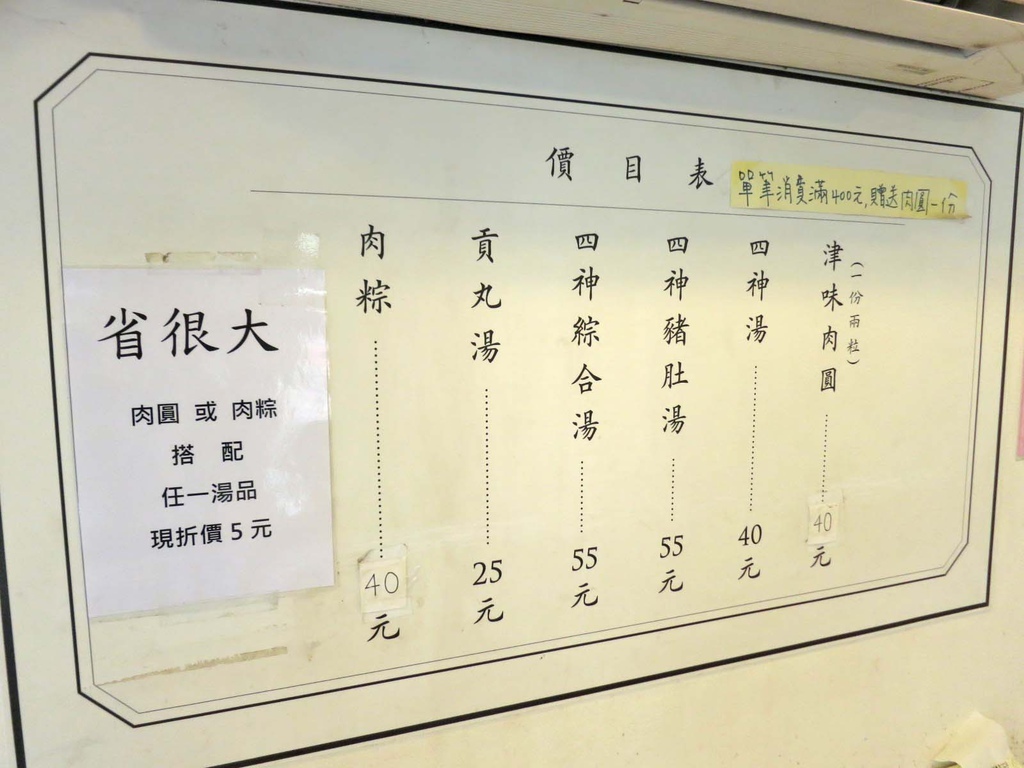 價目表
單筆消費滿400元,贈送肉圓一份
津味肉圓(一份兩粒)40元
四神湯40元
四神豬肚湯55元
四神綜合湯55元
貢丸湯25元
肉粽40元
省很大
肉圓 或 肉粽
搭 配
任一湯品
現折價5元